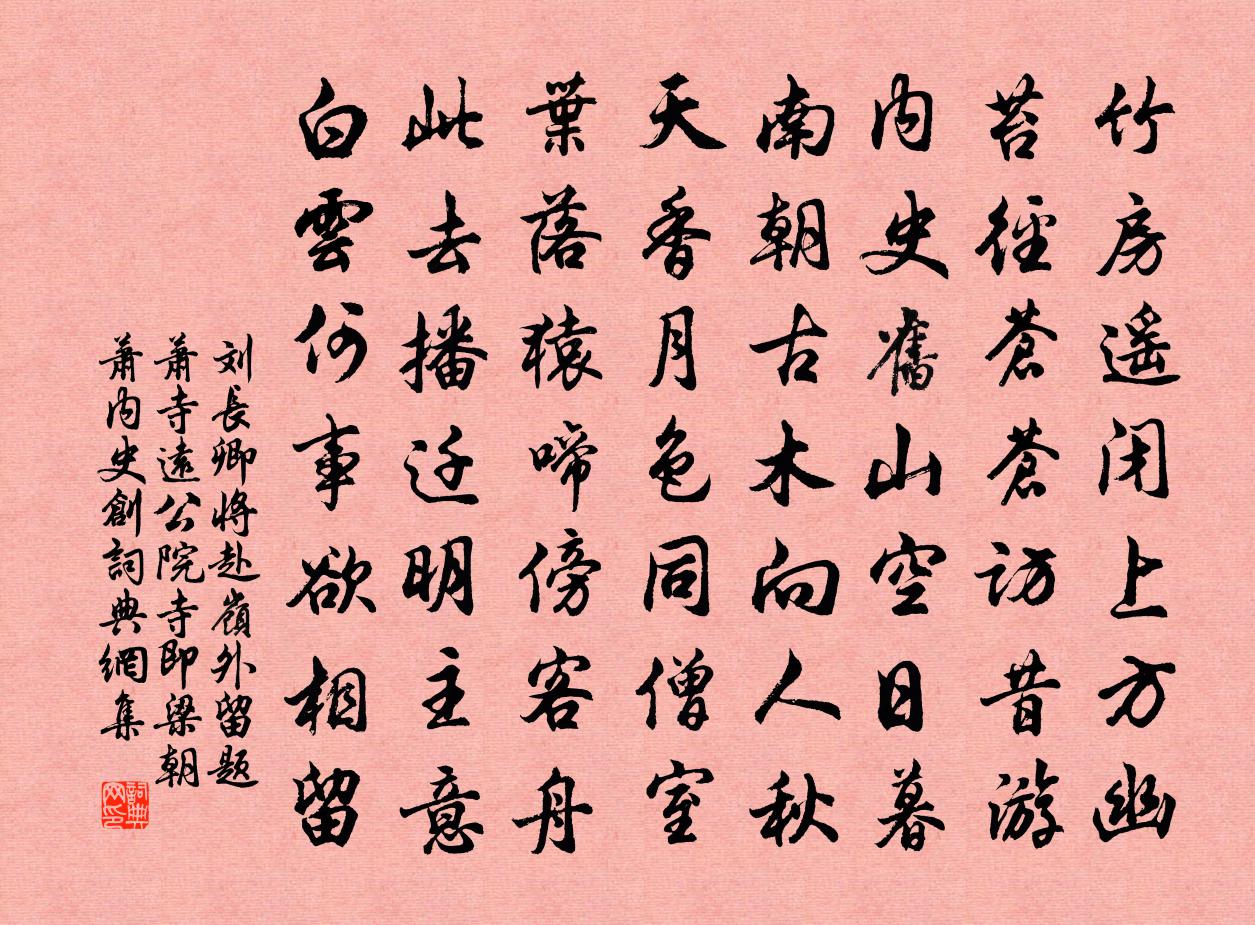 竹房遥闭上方幽
苔径蒼蒼訪昔游
内史舊山空日暮
南朝古木向人秋
天香月色同僧室
葉落猿啼傍客舟
此去播迁明主意
白雲何事欲相留
刘長卿將赴嶺外留題
蕭寺遠公院寺即梁朝
蕭内史創詞典網集
詞典网印